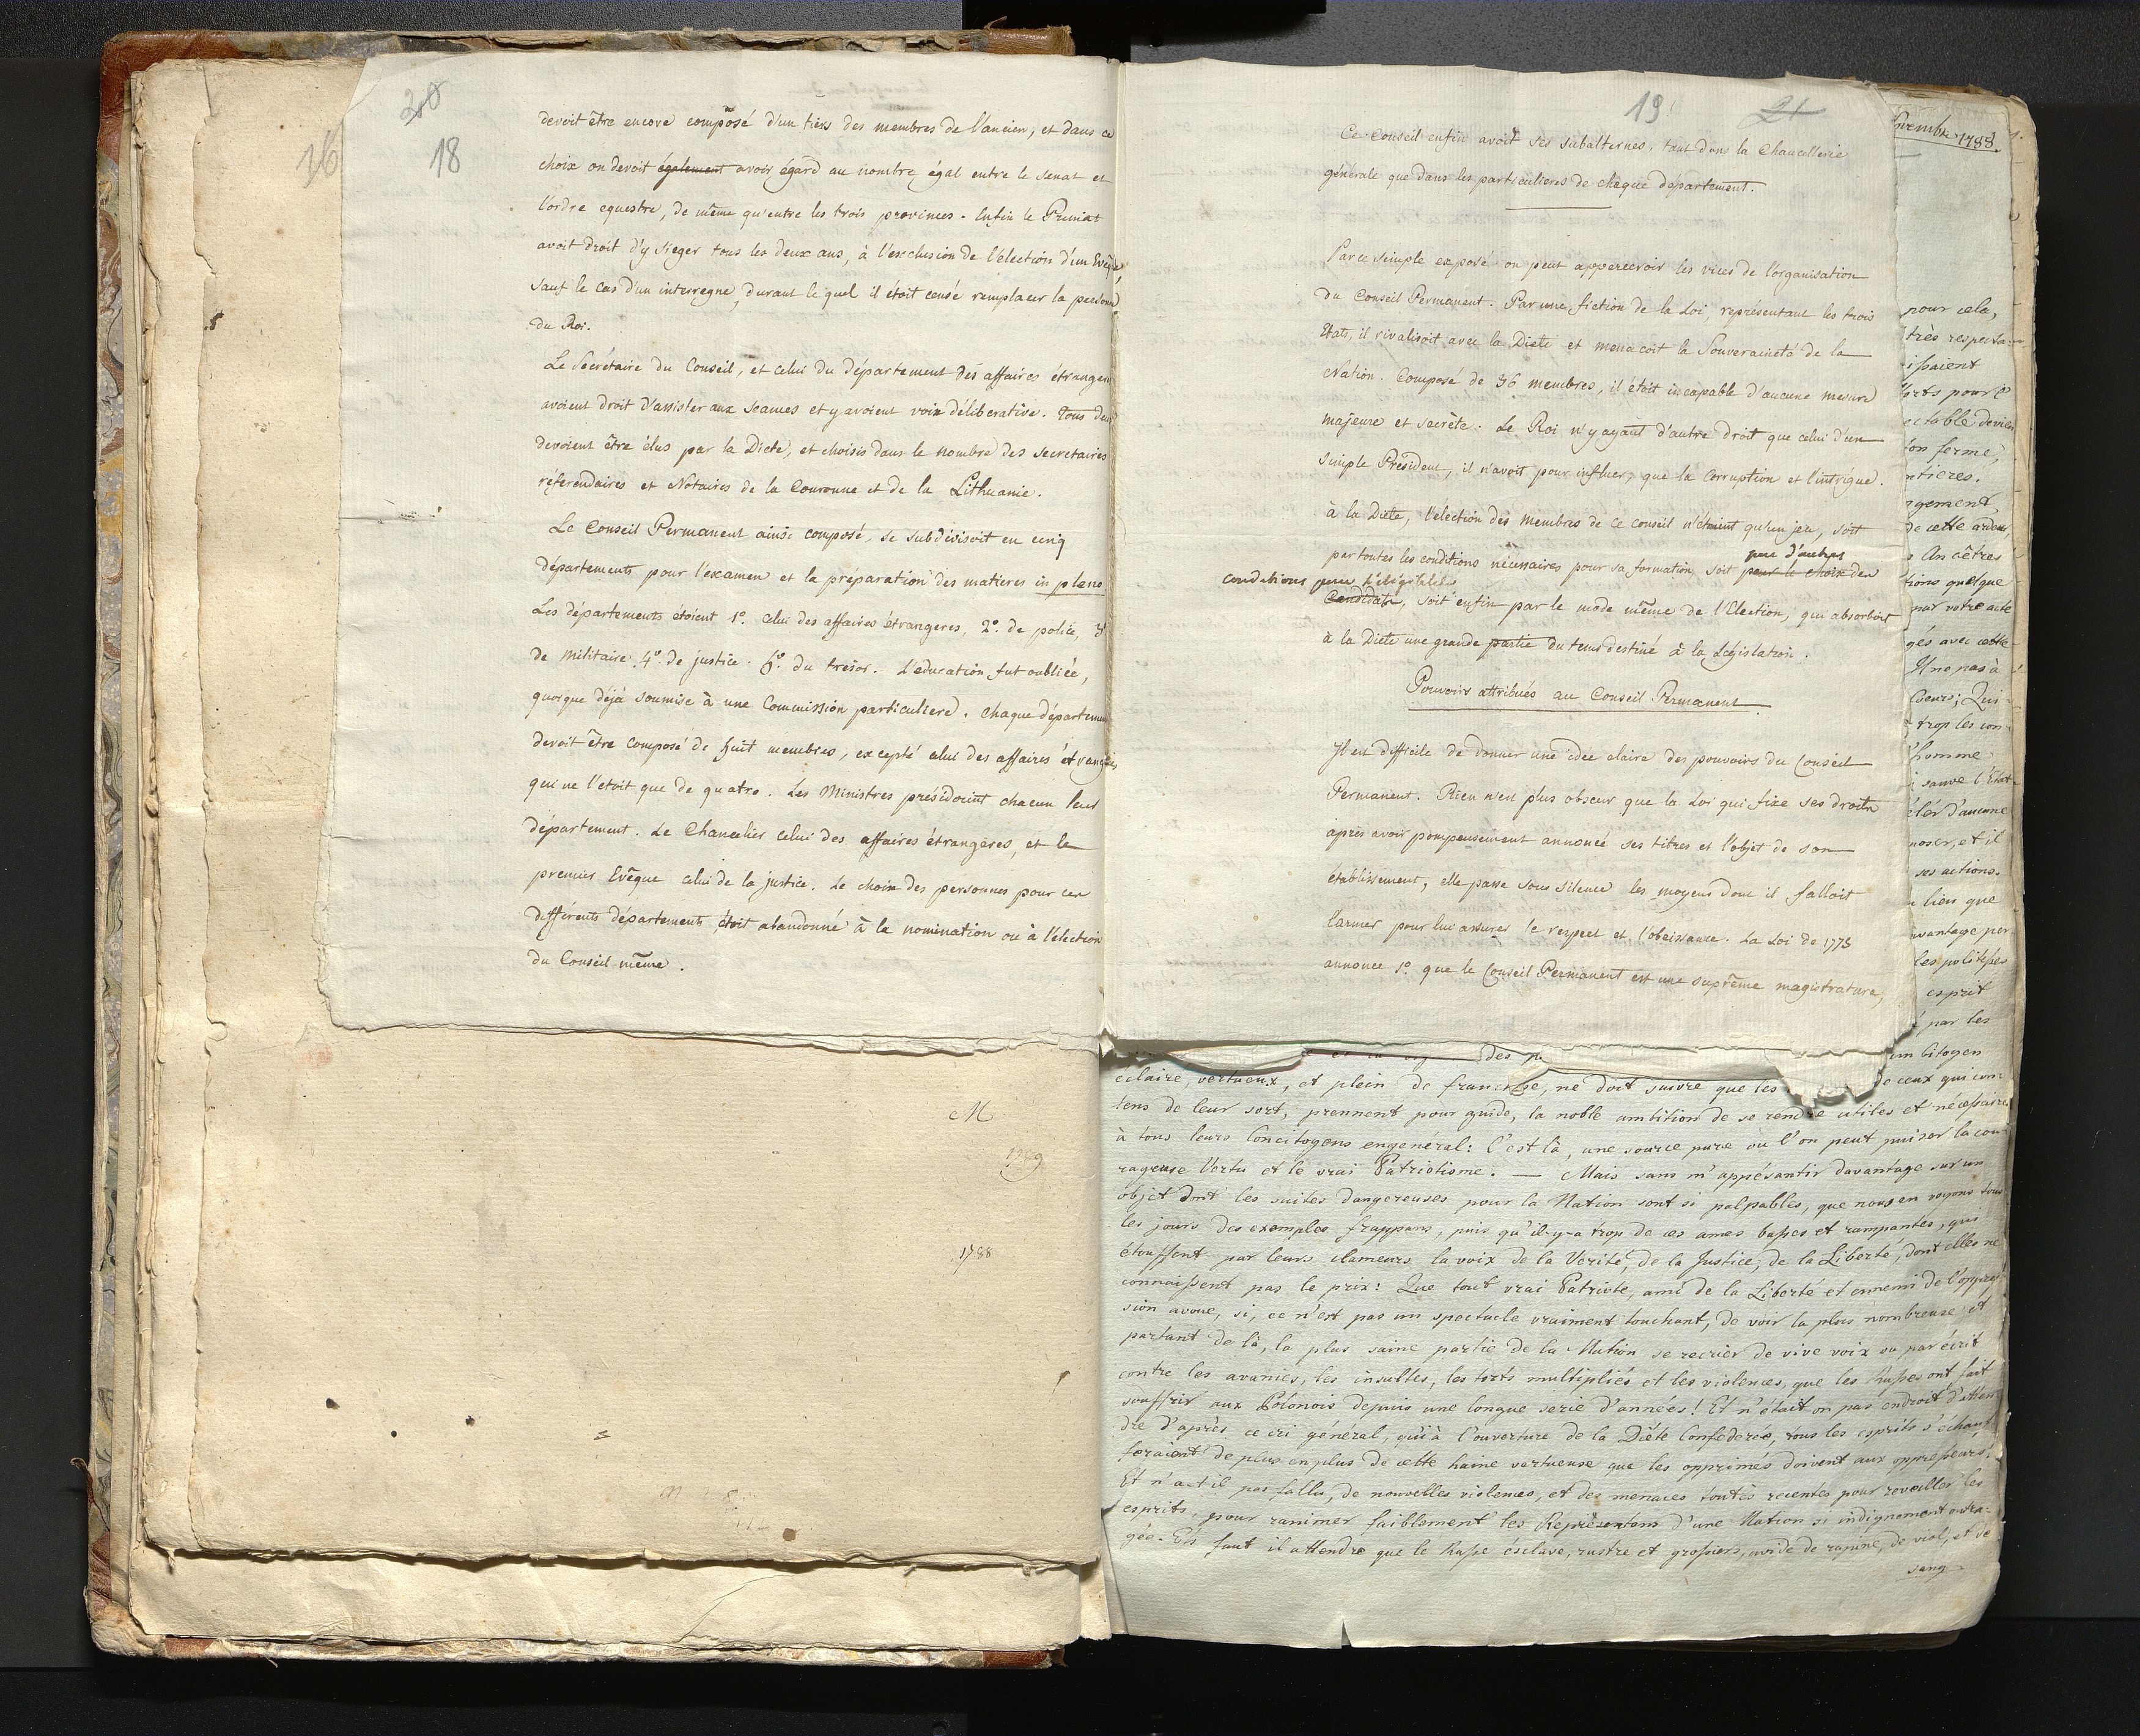 20
16
18
devoit être encore composé d'un tiers des membres de l'ancien, et dans ce
choix on devoit également avoir égard au nombre égal entre le Senat et
l'ordre equestre, de même qu'entre les trois provinces. Enfin le Primat
avoit droit d'y sieger tous les deux ans, à l'exclusion de l'élection d'un Evêque,
sauf le cas d'un interregne, durant le quel il étoit censé remplacer la personne
du Roi.
Le Secrétaire du Conseil, et celui du département des affaires étrangeres
avoient droit d'assister aux seances et y avoient voix déliberative. Tous deux
devoient être élus par la Diete, et choisis dans le nombre des secretaires
réferendaires et Notaires de la Couronne et de la Lithuanie.
Le Conseil Permanent ainsi composé, se subdivisoit en cinq
départements pour l'examen et la préparation des matieres in pleno.
Les départements étoient 1º. celui des affaires étrangeres, 2º. de police, 3º
de militaire 4º. de justice. 5º. du tresor. L'education fut oubliée,
quoique déjà soumise à une Commission particuliere. Chaque département
devoit être composé de huit membres, excepté celui des affaires étrangeres
qui ne l'etoit que de quatre. Les Ministres présidoient chacun leur
département. Le Chancelier celui des affaires étrangeres, et le
premier Evêque celui de la justice. Le choix des personnes pour ces
différents départements étoit abandonné à la nomination ou à l'élection
du Conseil même.
M
1789
1788
19
21
Ce Conseil enfin avoit ses subalternes, tant dans la Chancellerie
générale que dans les particulieres de chaque département.
Par ce simple exposé on peut appercevoir les vices de l'organisation
du Conseil Permanent. Par une fiction de la Loi, représentant les trois
Etats, il rivalisoit avec la Diete et menacoit la Souveraineté de la
Nation. Composé de 36 membres, il étoit incapable d'aucune mesure
majeure et secrète. Le Roi n'y ayant d'autre droit que celui d'un
simple Président, il n'avoit pour influer, que la corruption et l'intrigue.
à la Diete, l'élection des membres de ce conseil n'étoient qu'un jeu, soit
par toutes les conditions nécessaires pour sa formation soit pour le choix des
par d'autres
conditions pour l'eligibilité
Candidats, soit enfin par le mode même de l'Election, qui absorboit
à la Diete une grande partie du tems destiné à la Législation.
Pouvoirs attribués au Conseil Permanent
Il est difficile de donner une idée claire des pouvoirs du Conseil
Permanent. Rien n'est plus obscur que la Loi qui fixe ses droits
après avoir pompeusement annoncé ses titres et l'objet de son
établissement, elle passe sous silence les moyens dont il falloit
l'armer pour lui assurer le respect et l'obeissance. La Loi de 1775
annonce 1º. que le Conseil Permanent est une suprême magistrature,
Novembre 1788.
pour cela,
très respecta-
issaient
orts pour l'
ectable devien
on ferme,
ntieres.
ngement
de cette ardeur,
Ancêtres
tions quelque
par votre acte
gés avec cette
Une pas à
Coeurs; Qui
trop les con-
homme
sauve l'Etat
d'aucune
noser, et il
ses actions.
lien que
avantage per
les politiques
esprit
par les
des
un Citoyen
éclairé, vertueux, et plein de franchise, ne doit suivre que les de ceux qui con-
tens de leur sort, prennent pour guide, la noble ambition de se rendre utiles et nécessaires
à tous leurs Concitoyens en general: C'est là, une source pure où l'on peut puiser la cou-
rageuse Vertu et le vrai Patriotisme. — Mais sans m'appésantir davantage sur un
objet dont les suites dangereuses pour la Nation sont si palpables, que nous en voyons tous
les jours des exemples frappans, puis qu'il-y-a trop de ces ames basses et rampantes, qui
étouffent par leurs clameurs la voix de la Verité, de la Justice, de la Liberté, dont elles ne
connaissent pas le prix: Que tout vrai Patriote, ami de la Liberté et ennemi de l'oppres-
sion avoue, si, ce n'est pas un spectacle vraiment touchant, de voir la plus nombreuse et
partant de là, la plus saine partie de la Nation se recrier de vive voix ou par écrit
contre les avanies, les insultes, les torts multipliés et les violences, que les Russes ont fait
souffrir aux Polonois depuis une longue serie d'années! Et n'était on pas endroit d'atten-
dre d'après ce cri général, qu'à l'ouverture de la Diéte Confederée, tous les esprits s'échauf-
feraient de plus en plus de cette haine vertueuse que les opprimés doivent aux oppresseurs!
Et n'a-t-il pas fallu, de nouvelles violences, et des menaces toutes recentes pour reveiller les
esprits, pour ranimer faiblement les Représentans d'une Nation si indignement outra-
gée. Et faut il attendre que le Russe ésclave, rustre et grossier, avide de rapine, de viol, et de
sang